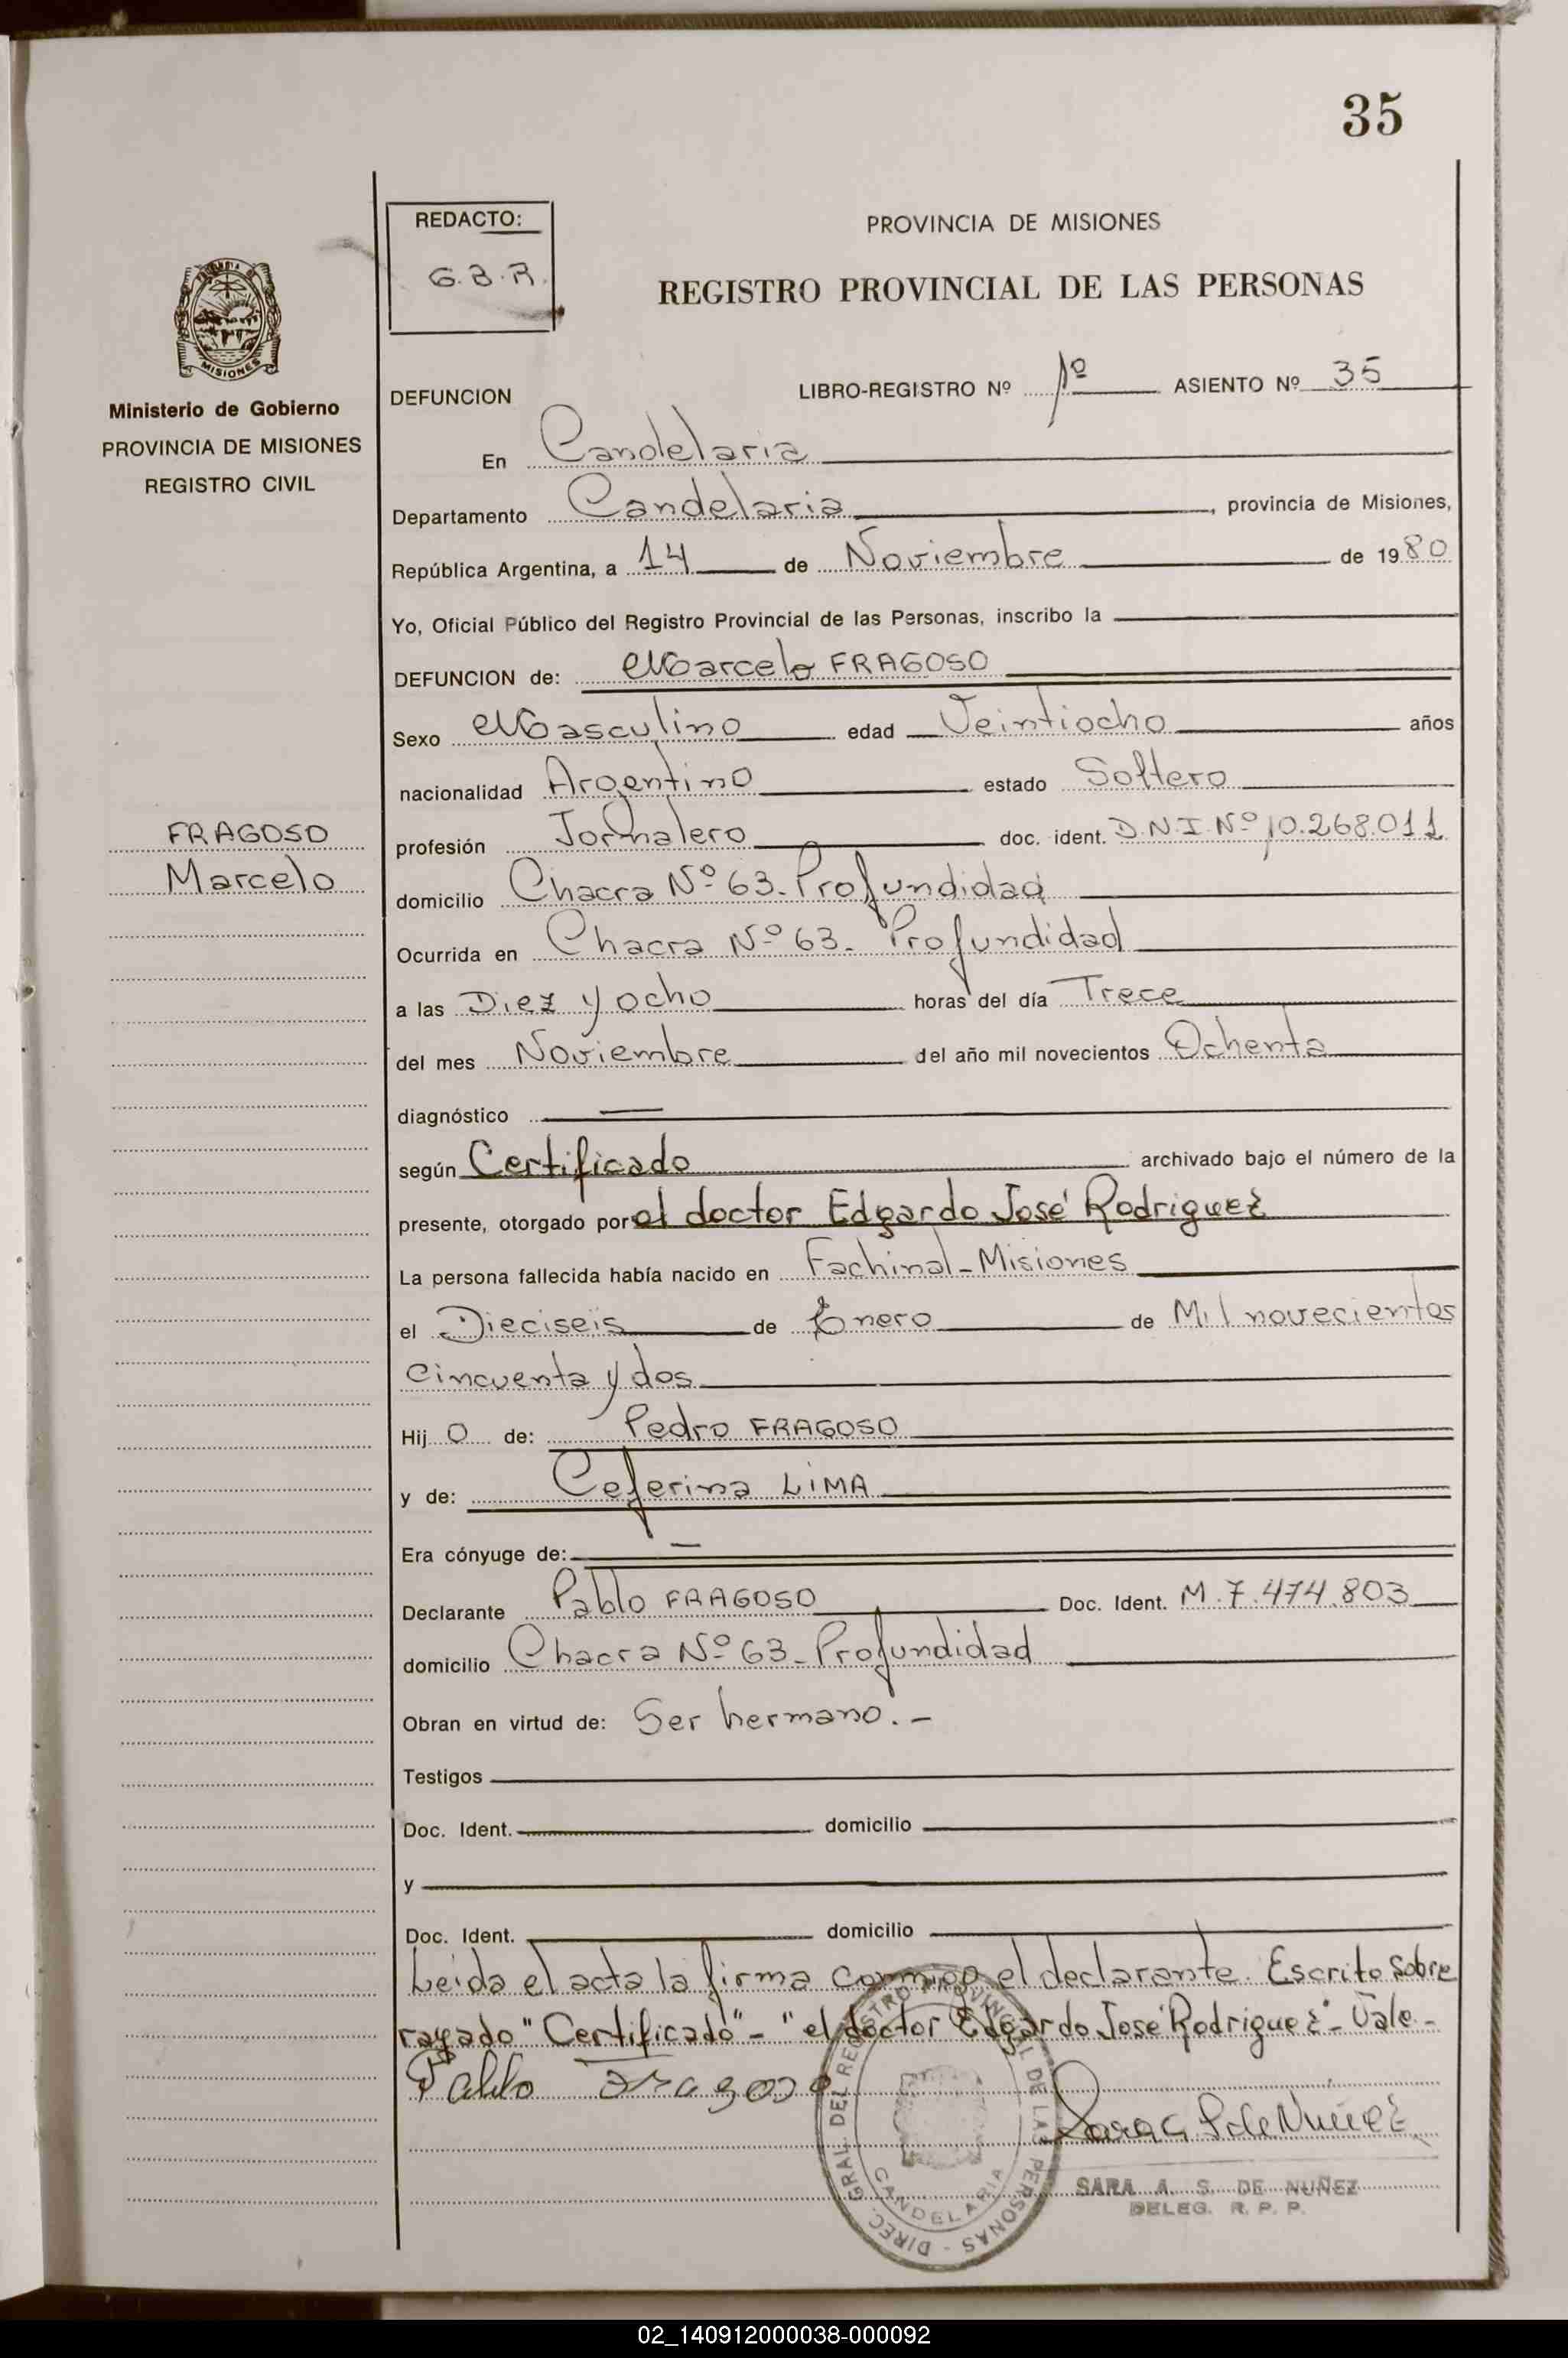 35
REDACTO:
G.B.R.
PROVINCIA DE MISIONES
REGISTRO PROVINCIAL DE LAS PERSONAS
MISIONES
Ministerio de Gobierno
PROVINCIA DE MISIONES
REGISTRO CIVIL
DEFUNCION LIBRO-REGISTRO Nº 1º ASIENTO Nº 35
En Candelaria
Departamento Candelaria, provincia de Misiones,
República Argentina, a 14 de Noviembre de 1980
Yo, Oficial Público del Registro Provincial de las Personas, inscribo la
DEFUNCION de: Marcelo FRAGOSO
Sexo Masculino edad Veintiocho años
nacionalidad Argentino estado Soltero
FRAGOSO
Marcelo
profesión Jornalero doc. ident. D.N.I. Nº 10.268.011
domicilio Chacra Nº 63- Profundidad
Ocurrida en Chacra Nº 63- Profundidad
a las Diez y ocho horas del día Trece
del mes Noviembre del año mil novecientos Ochenta
diagnóstico —
según Certificado archivado bajo el número de la
presente, otorgado por el doctor Edgardo José Rodriguez
La persona fallecida había nacido en Fachinal-Misiones
el Dieciseis de Enero de Mil novecientos
cincuenta y dos
Hijo de: Pedro FRAGOSO
y de: Ceferina LIMA
Era cónyuge de: —
Declarante Pablo FRAGOSO Doc. Ident. M.7.474.803
domicilio Chacra Nº 63- Profundidad
Obran en virtud de: Ser hermano.-
Testigos
Doc. Ident. domicilio
y
Doc. Ident. domicilio
Leida el acta la firma conmigo el declarante. Escrito sobre
rayado "Certificado"- "el doctor Edgardo José Rodriguez"- Vale-
Pablo Fragoso
Sara S de Nuñez
DIREC. GRAL. DEL REGISTRO PROVINCIAL DE LAS PERSONAS -
CANDELARIA
SARA A. S. DE NUÑEZ
DELEG. R. P. P.
02_140912000038-000092